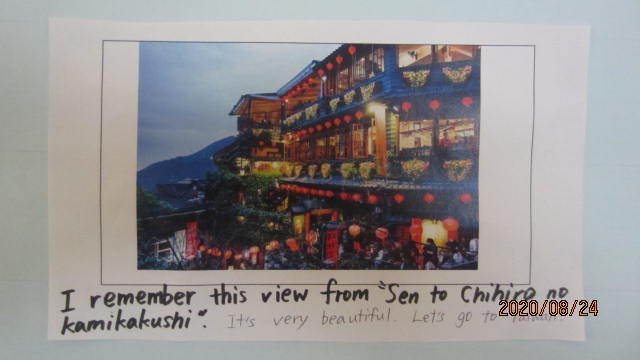 I remember this view from "Sen to Chihiro no
kamikakushi". It's very beautiful. Let's go to Taiwan!
2020/08/24